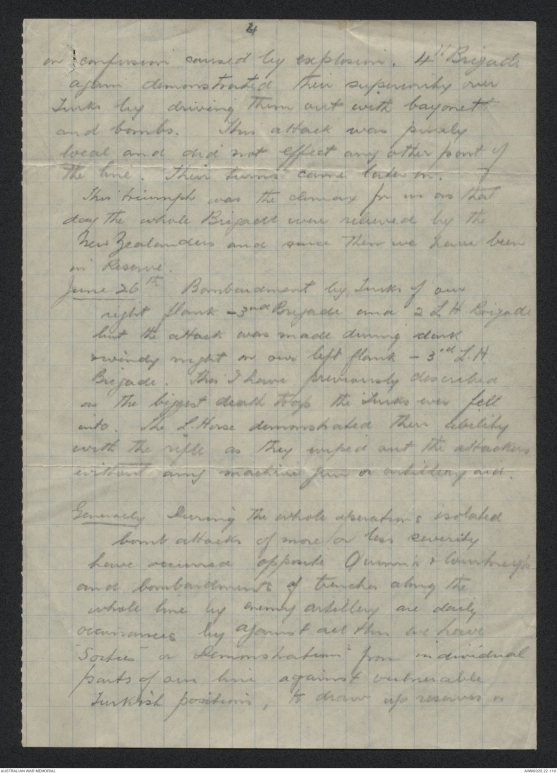 4
on confusion caused by explosion. 4th Brigade
again demonstrated their superiority over
Turks by driving them out with bayonet
and bombs. This attack was purely
local and did not effect any other point of
the line. Their turns came later on.
This triumph was the climax for us as that
day the whole Brigade were relieved by the
New Zealanders and since then we have been
in Reserve.
June 26th Bombardment by Turks of our
right flank - 3rd Brigade and 2 LH Brigade
but the attack was made during dark
windy night on our left flank - 3rd L.H
Brigade. This I have previously described
as the biggest death trap the Turks ever fell
into. The L Horse demonstrated their ability
with the rifle as they wiped out the attackers
without any machine gun or artillery aid.
Generally During the whole operations isolated
bomb attacks of more or less severity
have occurred opposite Quinn's &
and bombardments of trenches along the
whole line by enemy artillery are daily
occurrances by against all this we have
"Sorties" or Demonstrations from individual
parts of our line against vulnerable
Turkish positions, to draw up reserves or
AUSTRALIAN WAR MEMORIAL